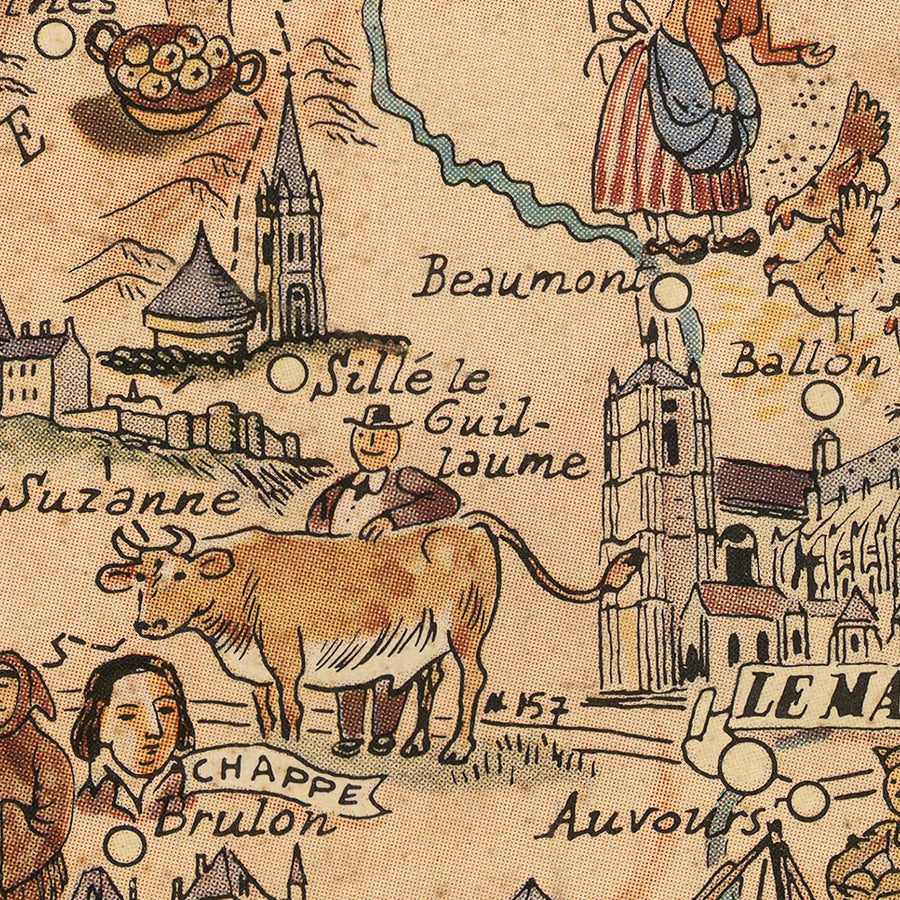 E
Beaumont
Ballon
Sillé le
Guil-
laume
Suzanne
N 157
LE MA
CHAPPE
Brulon
Auvours